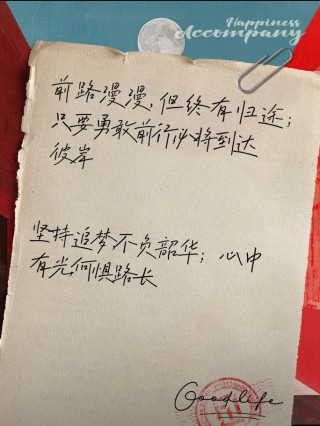 Happiness
Accompany
前路漫漫，但终有归途；
只要勇敢前行必将到达
彼岸
坚持追梦不负韶华；心中
有光何惧路长
Goodlife